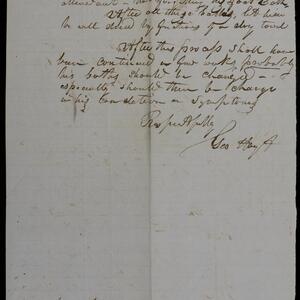 attendant
After all these baths, let him
be well dried by frictions of a dry towel
After this process shall have
been continued a few weeks probably
his baths should be changed
especially should there be change
in his condition or symptoms
Respectfully
Geo Hoyt